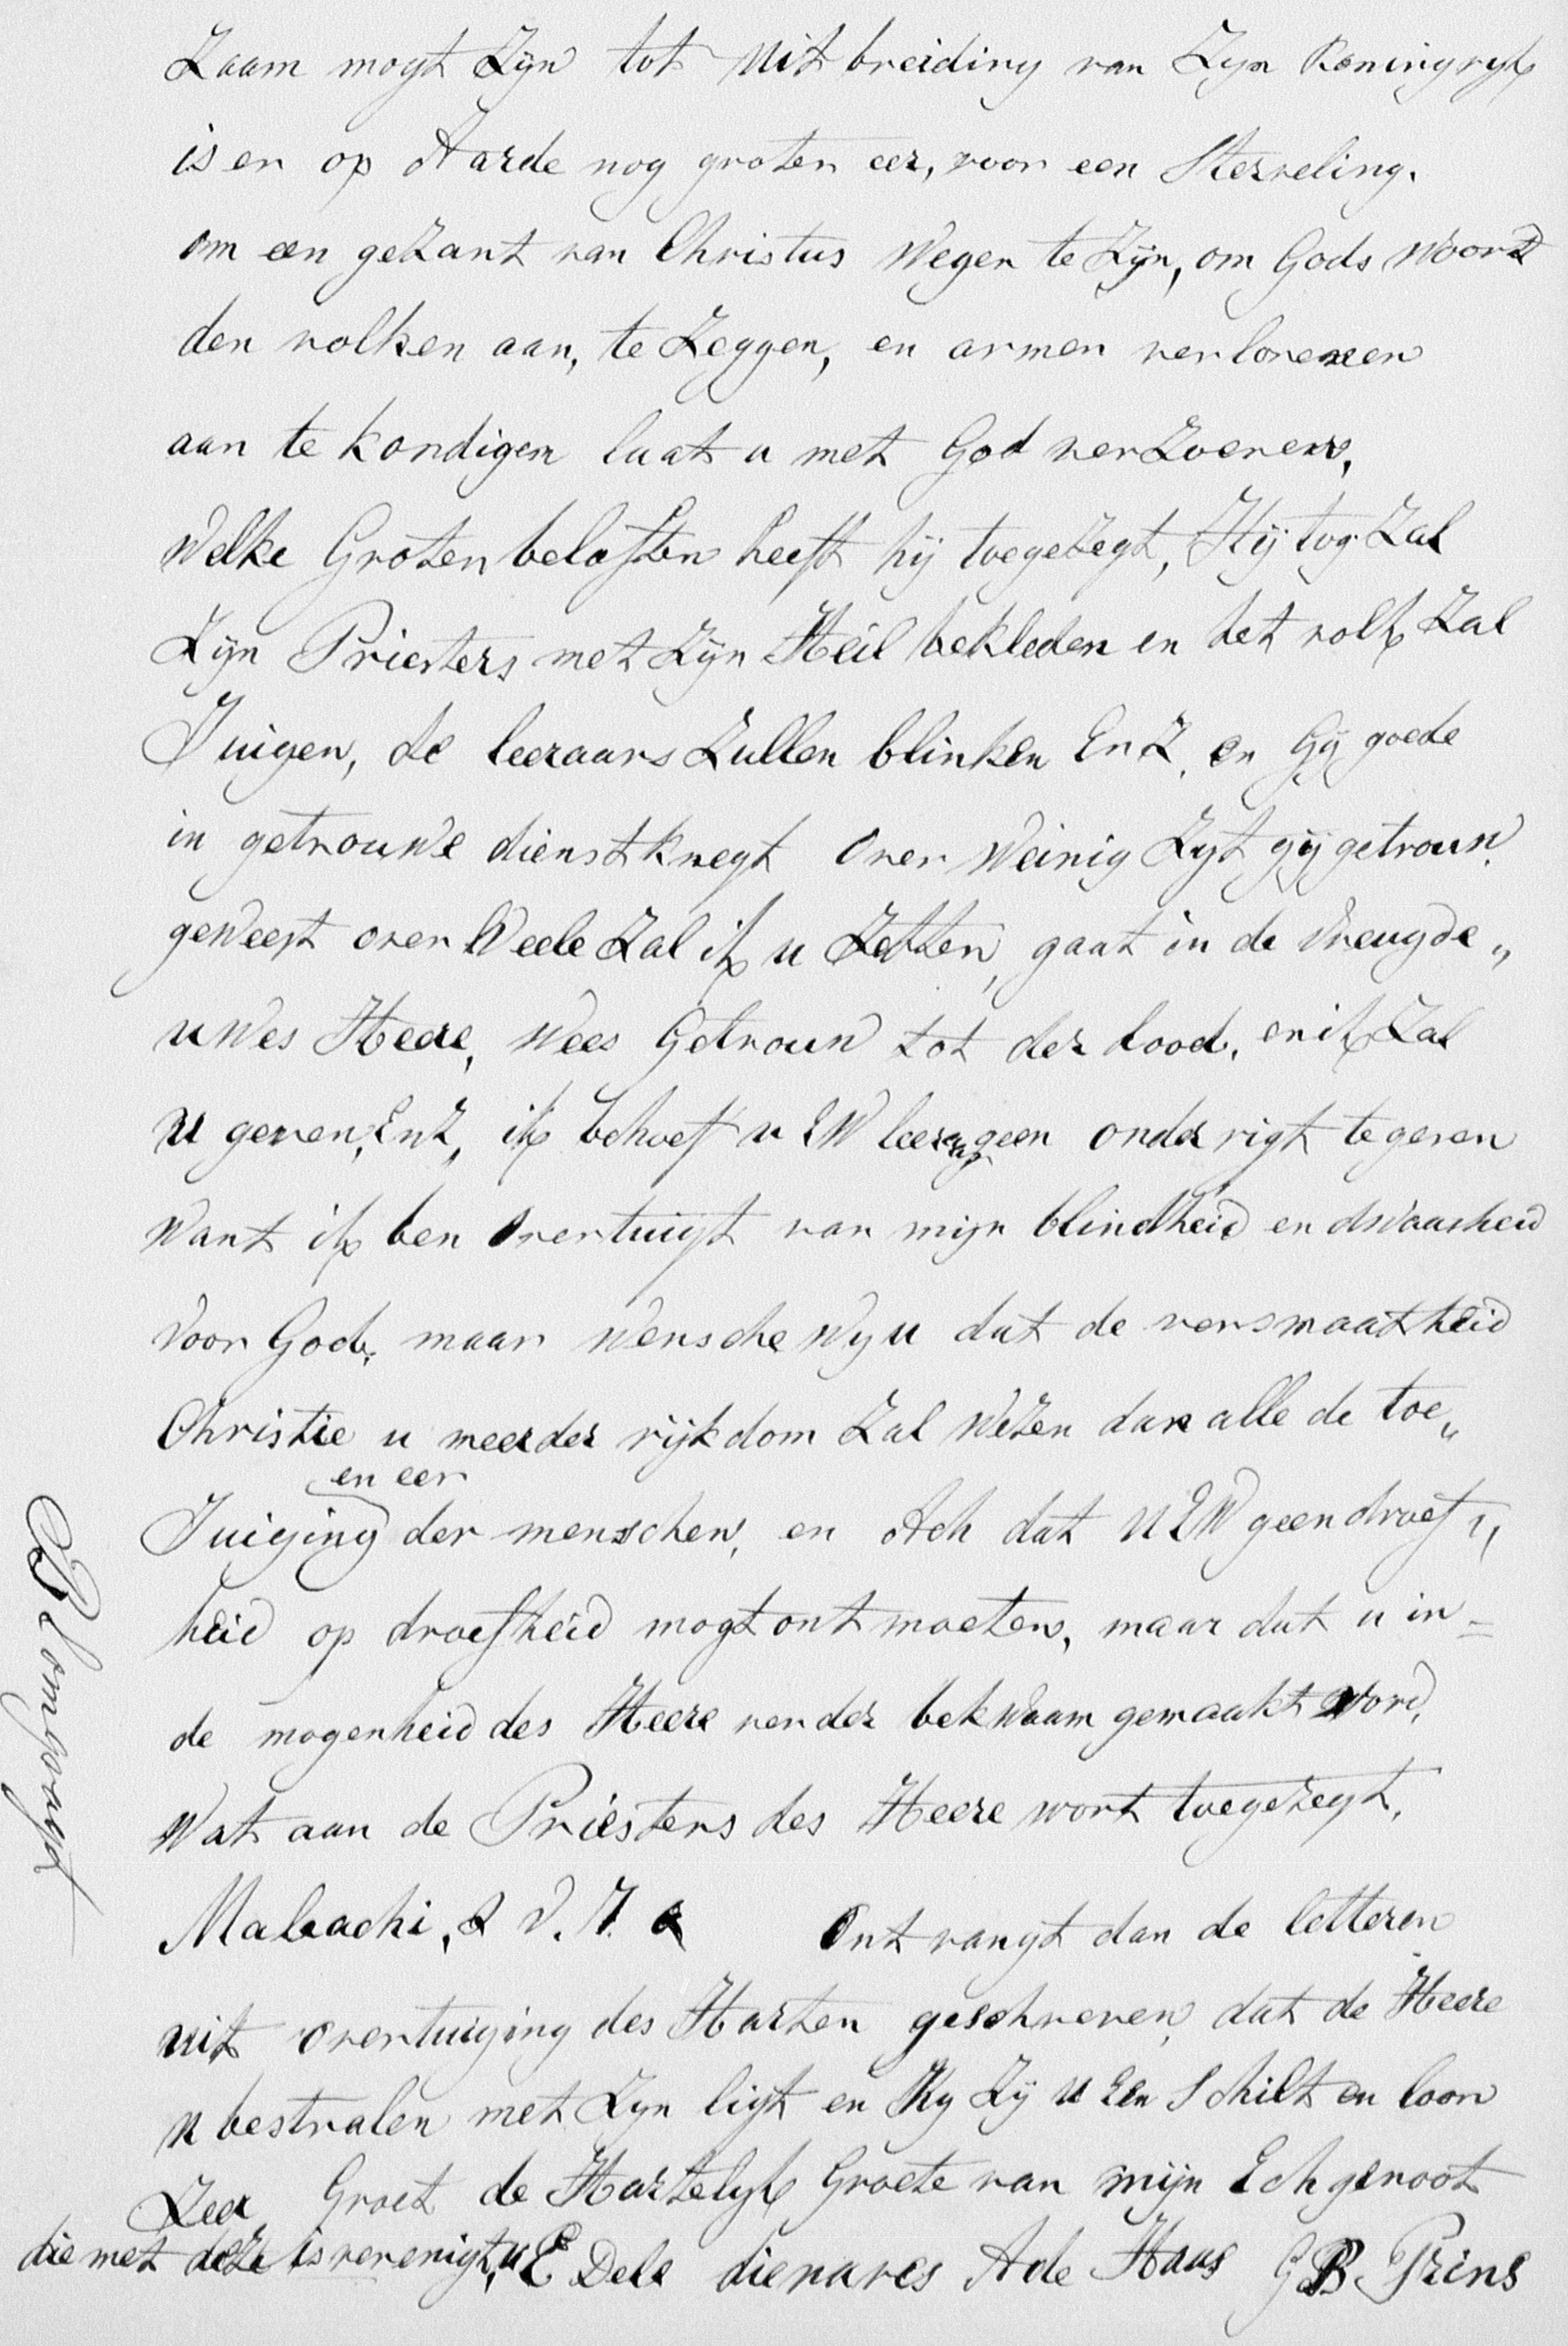 Zaam mogt Zijn tot Uit breiding van Zyn Koningryk
is er op Aarde nog groten eer, voor een Sterveling.
om een geZant van Christus Wegen te Zijn, om Gods Woord
den volken aan, te Zeggen, en armen verlorenen
aan te kondigen laat u met God verZoenen,
Welke Groten beloften heeft hij toegeZegt, Hij tog Zal
Zijn Priesters met Zijn Heil bekleden en het volk Zal
Juigen, de leeraars Zullen blinken EnZ, en Gij goede
in getrouwe dienstknegt Over Weinig Zyt gij getrouw
geWeest over Veele Zal ik u Zetten, gaat in de Vreugde „
uWes Heere, Wees Getrouw tot der dood, en ik Zal
U geven, EnZ, ik behoef u EW leeraar geen onderrigt te geven
Want ik ben Overtuigt van mijn blindheid en dWaasheid
Voor God, maar Wensche Wy u dat de versmaatheid
Christie u meerder rijkdom Zal WeZen dan alle de toe„
en eer
Juiging der menschen, en Ach dat UEW geen droef „
heid op droefheid mogt ontmoeten, maar dat u in =
de mogenheid des Heere verder bekWaam gemaakt word,
Wat aan de Priesters des Heere wort toegeZegt,
Maleachi, 2 V. 7.
Ontvangt dan de letteren
uit overtuiging des Harten geschreven, dat de Heere
u bestralen met Zyn ligt en Hy Zij U Een Schilt en loon
Zeer Groet de Hartelyk Groete van mijn Echgenoot
die met deze is verenigt, u EDele dienares A de Haas G B Prins